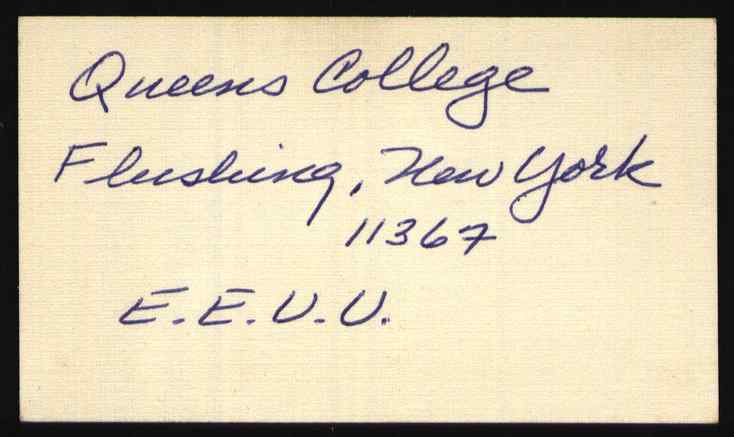 Queens College
Flushing, New York
11367
E.E.U.U.